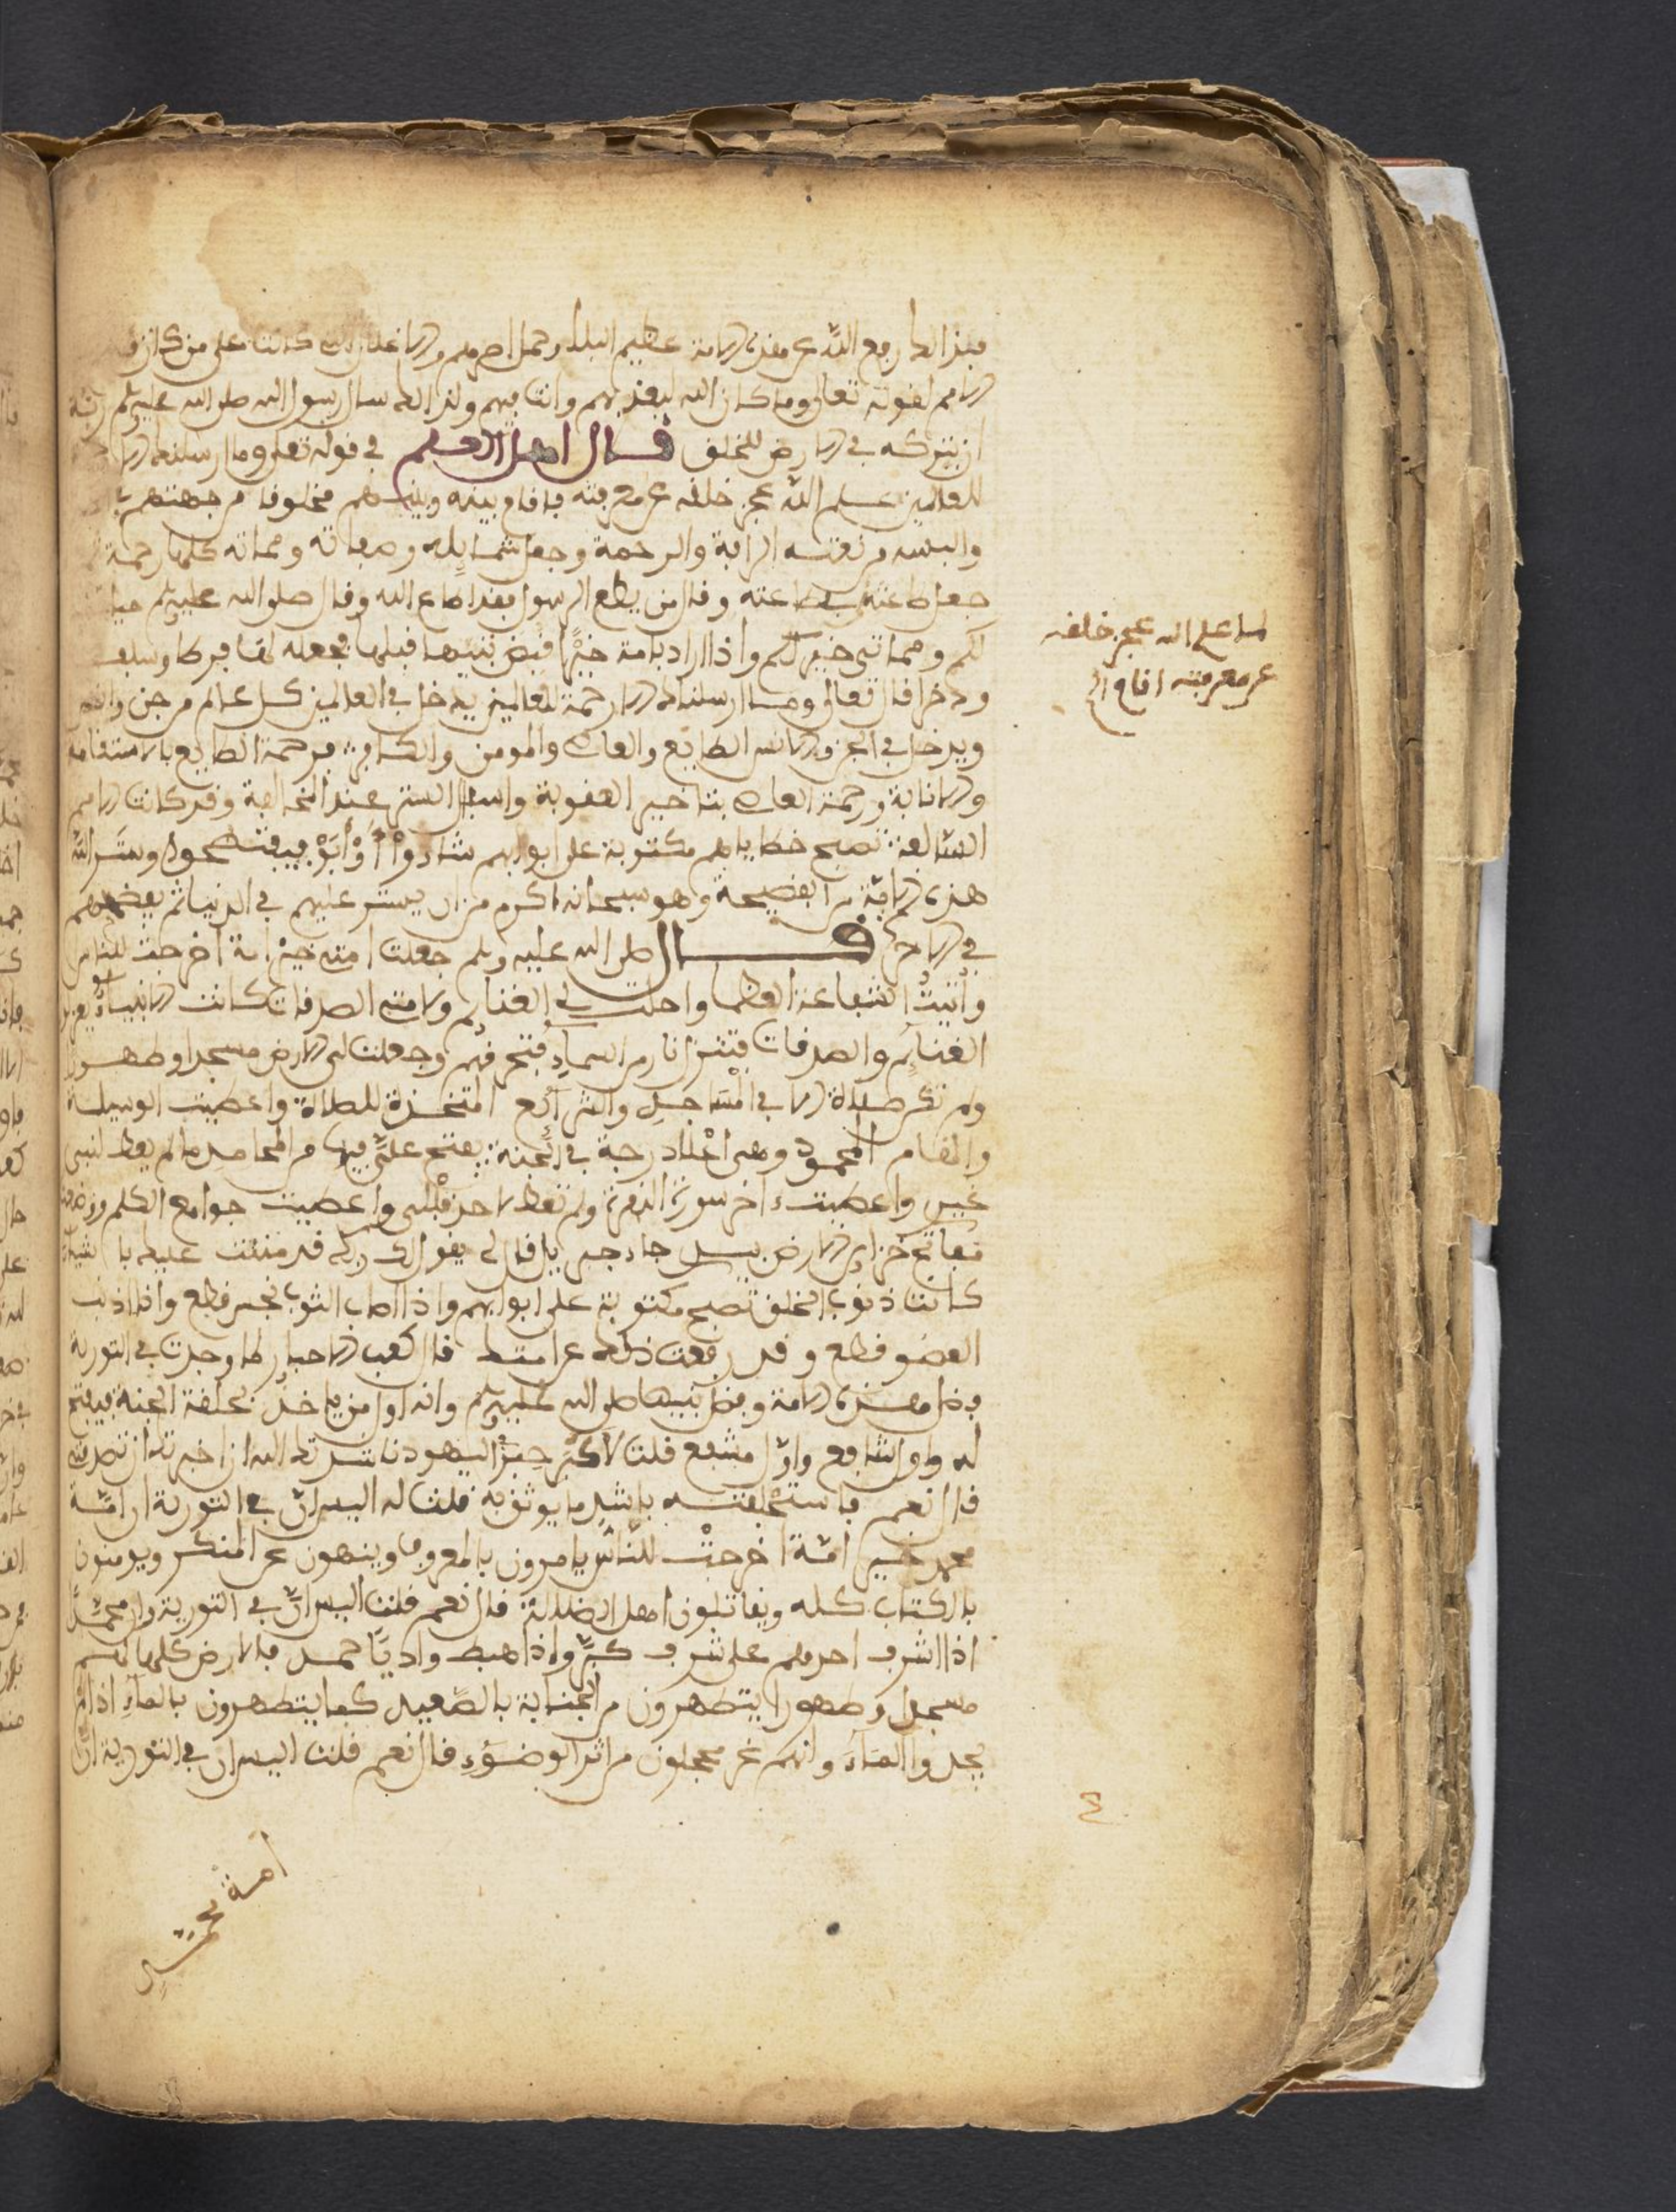 فبذالك رفع الله عن هذه الامة عظيم البلاء وحمل اصرهم والاغلال التي كانت على من كان قبل
الامم لقوله تعالى وما كان الله ليعذبهم وانت فيهم ولذالك سال رسول الله صلى الله عليه وسلم ربه
ان يتركه في الارض للخلق قال اهل العلم في قوله تعلى وما ارسلناك الا
للعالمين علم الله عجز خلقه عن معرفته فاقام بينه وبينهم مخلوقا من جهتهم
والبسه من نعته الرافة والرحمة وجعل شمايله وصفاته ومماته كلها رحمة
جعل طاعته بطاعته وقال من يطع الرسول فقد اطاع الله وقال صلى الله عليه وسلم حياتي
لكم ومماتي خير لكم واذا اراد بامة خيرا قبض نبيها قبلها فجعله لها فرطا وسلفا
وذخرا قال تعالى وما ارسلناك الا رحمة للعالمين يدخل في العالمين كل عالم من جن وانس
ويدخل في الجن والانس الطايع والعاصي والمومن والكافر فرحمة الطايع بالاستقامة
والانابة ورحمة العاصي بتاخير العقوبة واسبال الستر عند المخالفة وقد كانت الامم
السالفة تصبح خطاياهم مكتوبة على ابوابهم شاءوا او ابوا فيفتضحوا وستر الله
هذه الامة من الفضيحة وهو سبحانه اكرم من ان يستر عليهم في الدنيا ثم يفضحهم
في الاخرة قال صلى الله عليه وسلم جعلت امتي خير امة اخرجت للناس
واتيت الشفاعة العظما واحلت لي الغنايم ولامتي الصدقات كانت الانبياء
الغنايم والصدقات فتنزل نار من السماء فتحرقهم وجعلت لي الارض مسجدا وطهورا
ولم تكن صلاة الا في المساجد والشرائع المتخذة للصلاة واعطيت الوسيلة
والمقام المحمود وهي اعلا درجة في الجنة يفتح علي فيها من المحامد ما لم يعط لنبي
غيري واعطيت ءاخر سورة البقرة ولم تعط لاحد قبلي واعطيت جوامع الكلم
مفاتح خزاين الارض بيدي جاء جبريل فقال لي يقول لك ربك قد مننت عليك
كانت ذنوب الخلق تصبح مكتوبة على ابوابهم واذا اصاب الثوب نجس قطع واذا اذنب
العضو قطع وقد رفعت ذلك عن امتك قال كعب الاحبار كما وجدت في التورية
فضل هذه الامة وفضل نبيها صلى الله عليه وسلم وانه اول من ياخذ بحلقة الجنة فيفتح
له واول شافع واول مشفع قلت لاكبر حبر اليهود ناشدتك الله ان اخبرتك ان تصدقني
قال نعم فاستحلفته باشد ما يوثق به قلت له اليس ان في التورية ان امة
محمد خير امة اخرجت للناس يامرون بالمعروف وينهون عن المنكر ويومنون
بالكتاب كله ويقاتلون اهل الضلالة قال نعم قلت اليس ان في التورية ان محمدا
اذا اشرف احدهم على شرف كبر واذا هبط واديا حمد فالارض كلها لهم
مسجدا وطهورا يتطهرون من الجنابة بالصعيد كما يتطهرون بالماء اذا لم
يجدوا الماء وانهم غر محجلون من اثر الوضوء قال نعم قلت اليس ان في التورية ان
امة محمد
لما علم الله عجز خلقه
عن معرفته اقام الخ